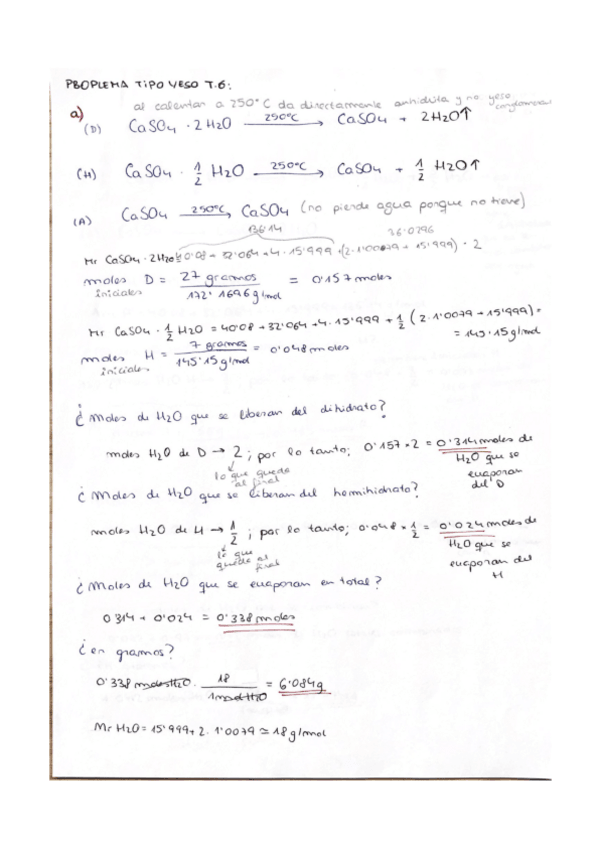 PBOPLEMA TIPO YESO T.6:
al calentar a 250°C da directamente anhidrita y no yeso conglomerado
a) (D) CaSO4 · 2H2O —250°C→ CaSO4 + 2H2O↑
(H) CaSO4 · 1/2 H2O —250°C→ CaSO4 + 1/2 H2O↑
(A) CaSO4 —250°C→ CaSO4 (no pierde agua porque no tiene)
136'14 36'0296
Mr CaSO4 · 2H2O = 40'08 + 32'064 + 4 · 15'999 + (2 · 1'0079 + 15'999) · 2
moles iniciales D = 27 gramos / 172'1696 g/mol = 0'157 moles
Mr CaSO4 · 1/2 H2O = 40'08 + 32'064 + 4 · 15'999 + 1/2 (2 · 1'0079 + 15'999) =
= 145'15 g/mol
moles iniciales H = 7 gramos / 145'15 g/mol = 0'048 moles
¿Moles de H2O que se liberan del dihidrato?
moles H2O de D → 2 ; por lo tanto; 0'157 · 2 = 0'314 moles de
H2O que se
evaporan
del D
lo que queda
al final
¿Moles de H2O que se liberan del hemihidrato?
moles H2O de H → 1/2 ; por lo tanto; 0'048 · 1/2 = 0'024 moles de
H2O que se
evaporan del
H
lo que
queda al
final
¿Moles de H2O que se evaporan en total?
0'314 + 0'024 = 0'338 moles
¿en gramos?
0'338 moles H2O · 18 / 1 mol H2O = 6'084 g
Mr H2O = 15'999 + 2 · 1'0079 ≃ 18 g/mol